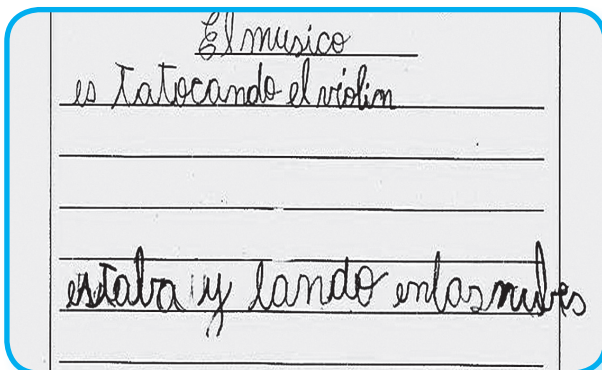 El musico
es tatocando el violin
estaba y lando enlasnubes